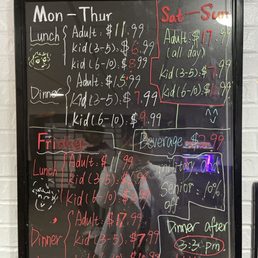 Mon-Thur
Lunch
Adult: $11.99
Kid(3-5): $6.99
Kid(6-10): $8.99
Dinner
Adult: $15.99
Kid(3-5): $7.99
Kid(6-10): $9.99
Sat-Sun
Adult: $17.99
(all day)
Kid(3-5): $7.99
Kid(6-10):
Friday
Lunch
Adult: $11.99
Kid(3-5): $6.99
Kid(6-10): $8.99
Dinner
Adult: $17.99
Kid(3-5): $7.99
Beverage $2.99
Senior 10%
off
Dinner after
(3:30 pm)